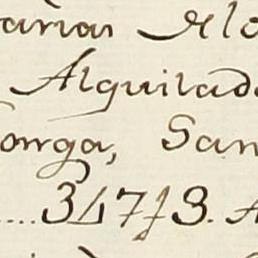 arias Alo
Alquilad
onga, San
....347f8. A